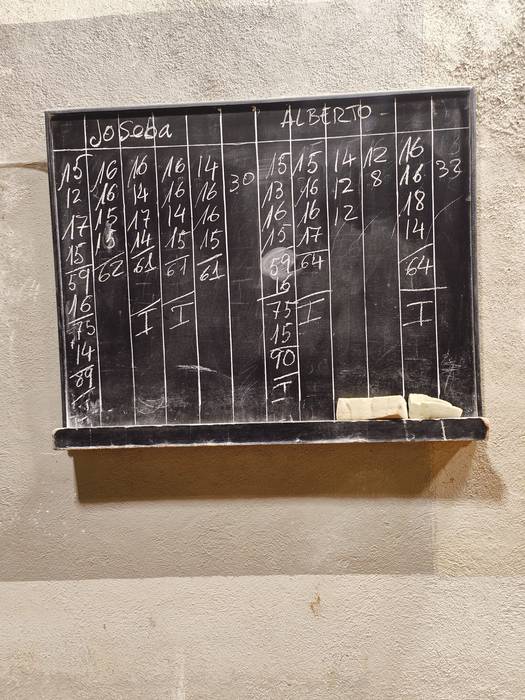 JoSeba ALBERTO -
15 16 16 16 14 15 15 14 12 16
12 16 14 16 16 30 13 16 12 8 16 32
17 15 17 14 16 16 16 12 18
15 15 14 15 15 15 17 14
59 62 61 61 61 59 64 64
16 16
75 I I 75 I I
14 15
89 90
I I